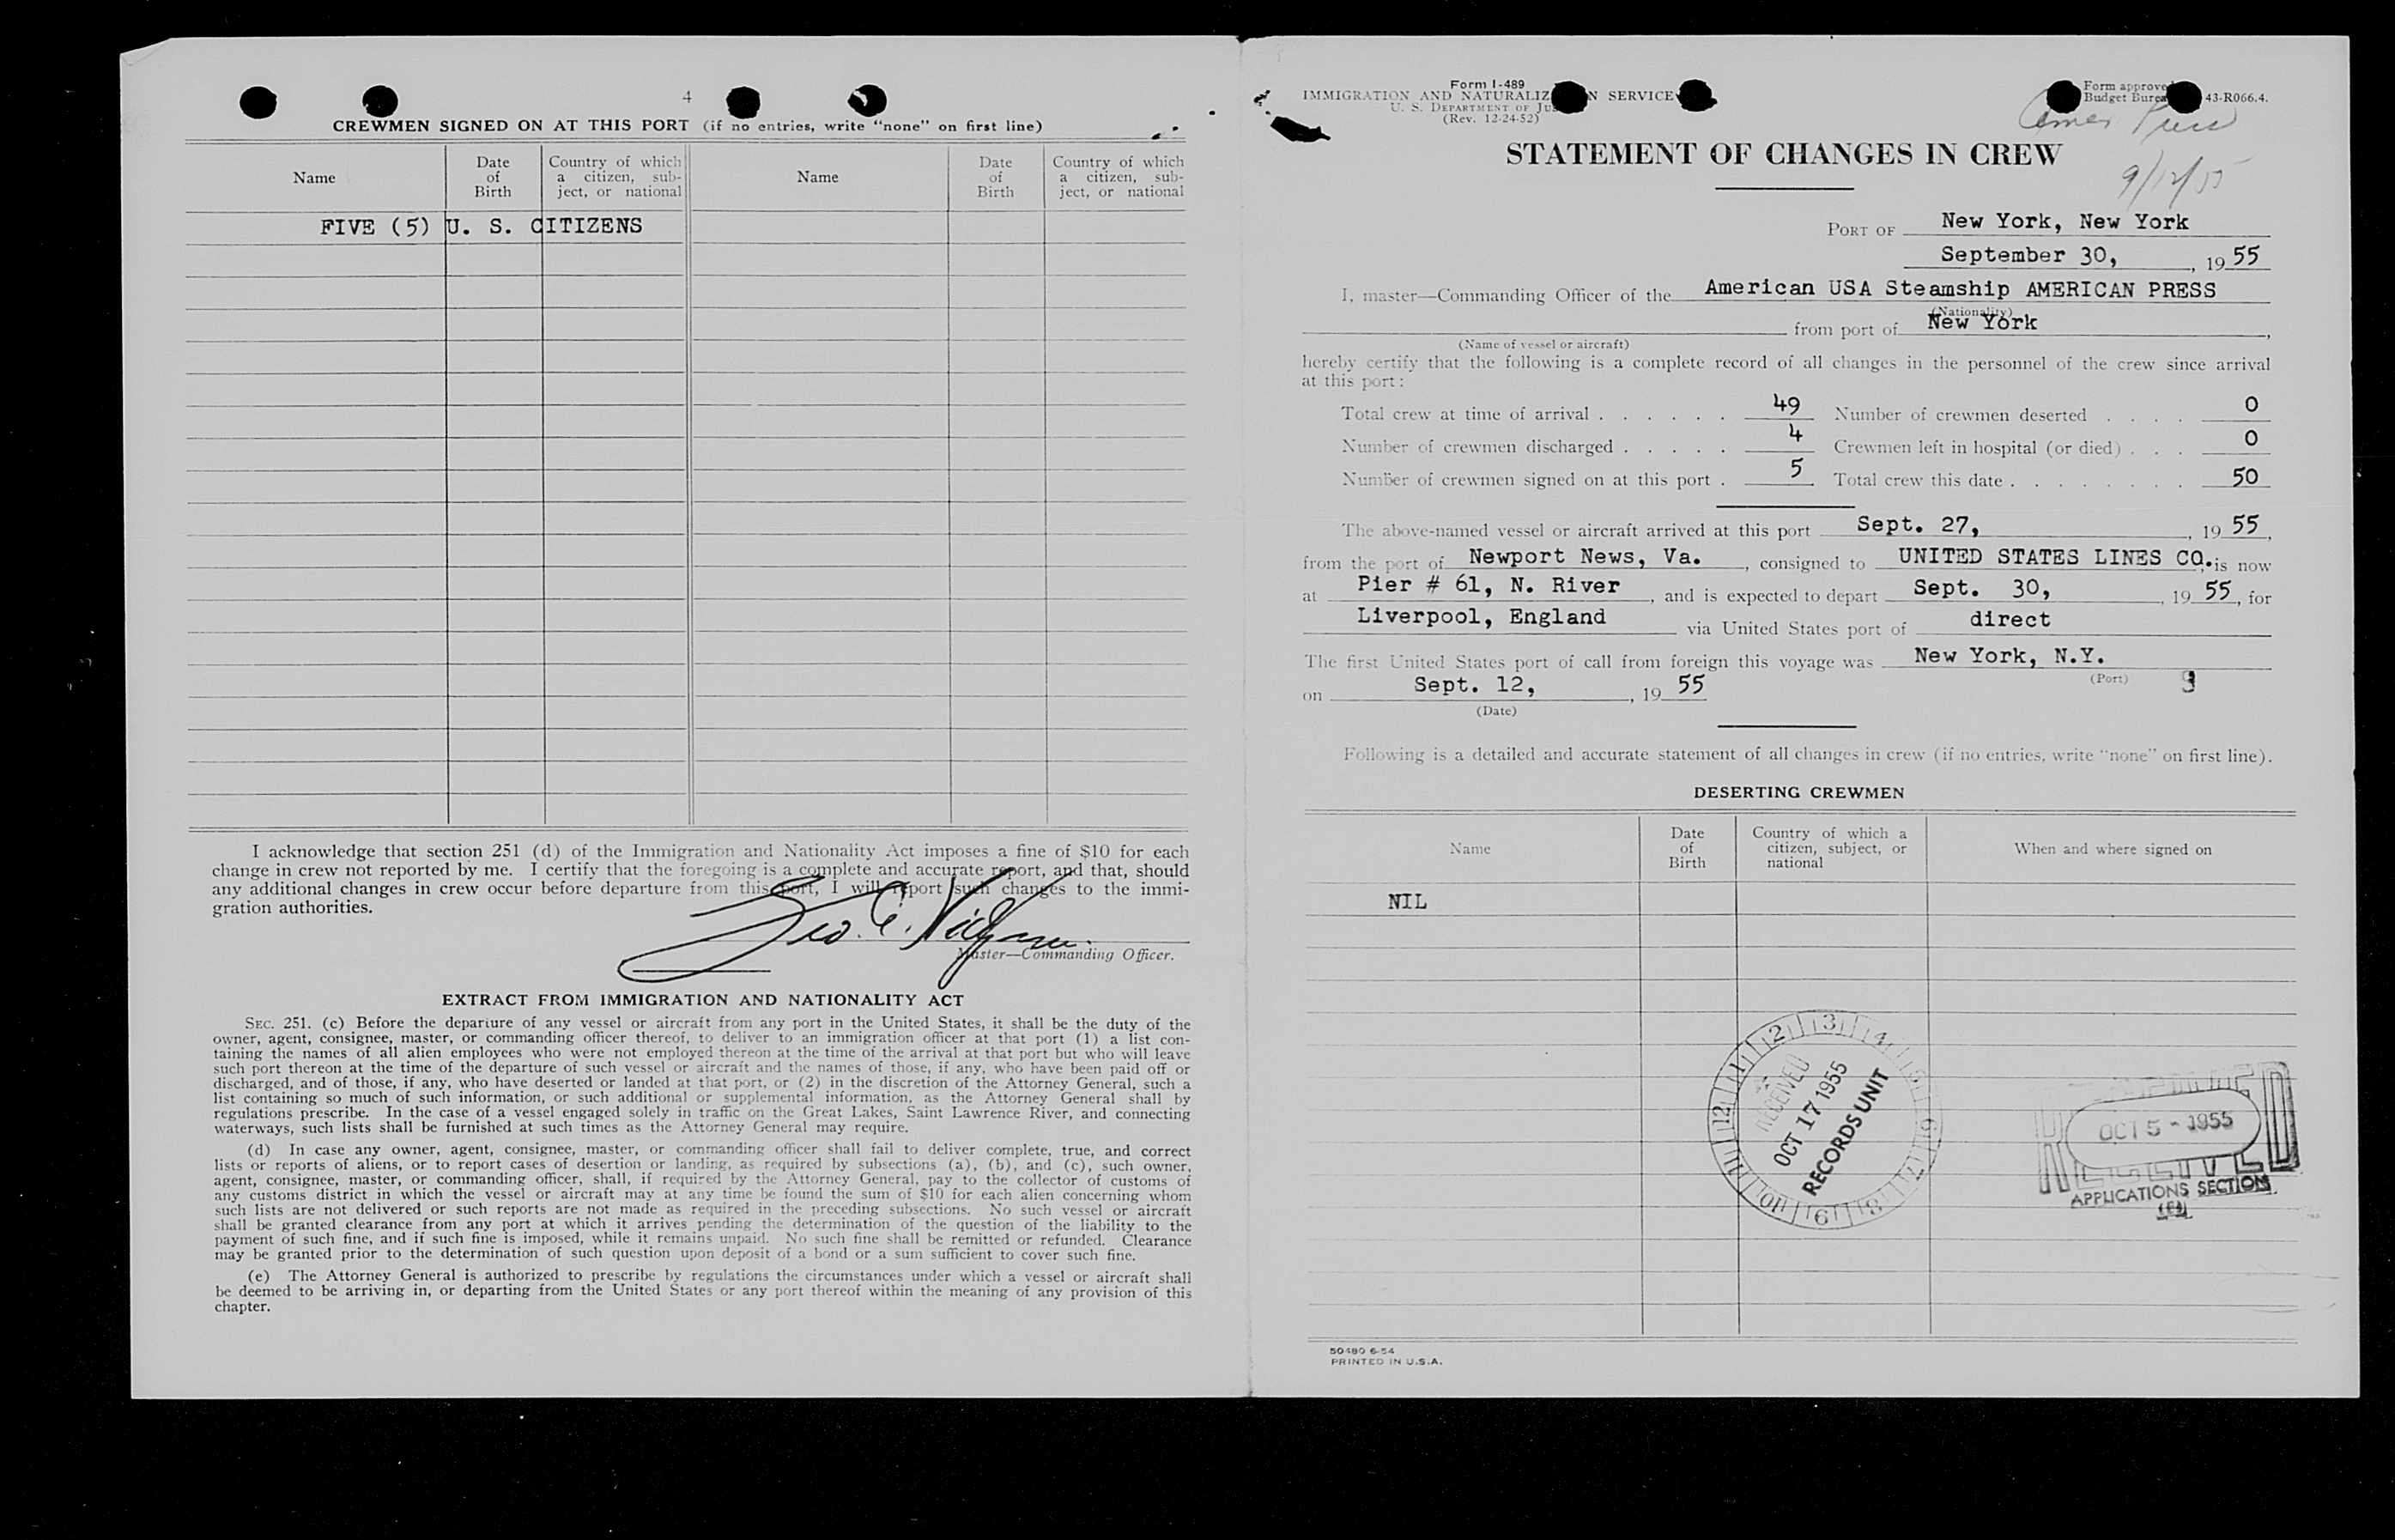 4
CREWMEN SIGNED ON AT THIS PORT (if no entries, write "none" on first line)
Name
Date of Birth
Country of which a citizen, subject, or national
Name
Date of Birth
Country of which a citizen, subject, or national
FIVE (5) U. S. CITIZENS
I acknowledge that section 251 (d) of the Immigration and Nationality Act imposes a fine of $10 for each
change in crew not reported by me. I certify that the foregoing is a complete and accurate report, and that, should
any additional changes in crew occur before departure from this port, I will report such changes to the immi-
gration authorities.
Geo. C.
Master—Commanding Officer.
EXTRACT FROM IMMIGRATION AND NATIONALITY ACT
SEC. 251. (c) Before the departure of any vessel or aircraft from any port in the United States, it shall be the duty of the
owner, agent, consignee, master, or commanding officer thereof, to deliver to an immigration officer at that port (1) a list con-
taining the names of all alien employees who were not employed thereon at the time of the arrival at that port but who will leave
such port thereon at the time of the departure of such vessel or aircraft and the names of those, if any, who have been paid off or
discharged, and of those, if any, who have deserted or landed at that port, or (2) in the discretion of the Attorney General, such a
list containing so much of such information, or such additional or supplemental information, as the Attorney General shall by
regulations prescribe. In the case of a vessel engaged solely in traffic on the Great Lakes, Saint Lawrence River, and connecting
waterways, such lists shall be furnished at such times as the Attorney General may require.
(d) In case any owner, agent, consignee, master, or commanding officer shall fail to deliver complete, true, and correct
lists or reports of aliens, or to report cases of desertion or landing, as required by subsections (a), (b), and (c), such owner,
agent, consignee, master, or commanding officer, shall, if required by the Attorney General, pay to the collector of customs of
any customs district in which the vessel or aircraft may at any time be found the sum of $10 for each alien concerning whom
such lists are not delivered or such reports are not made as required in the preceding subsections. No such vessel or aircraft
shall be granted clearance from any port at which it arrives pending the determination of the question of the liability to the
payment of such fine, and if such fine is imposed, while it remains unpaid. No such fine shall be remitted or refunded. Clearance
may be granted prior to the determination of such question upon deposit of a bond or a sum sufficient to cover such fine.
(e) The Attorney General is authorized to prescribe by regulations the circumstances under which a vessel or aircraft shall
be deemed to be arriving in, or departing from the United States or any port thereof within the meaning of any provision of this
chapter.
Form I-489
IMMIGRATION AND NATURALIZ N SERVICE
U. S. DEPARTMENT OF JUS
(Rev. 12-24-52)
Form approve
Budget Burea 43-R066.4.
Amer Press
9/12/55
STATEMENT OF CHANGES IN CREW
PORT OF New York, New York
September 30, , 19 55
I, master—Commanding Officer of the American USA Steamship AMERICAN PRESS
(Nationality)
from port of New York ,
(Name of vessel or aircraft)
hereby certify that the following is a complete record of all changes in the personnel of the crew since arrival
at this port:
Total crew at time of arrival . . . . . . 49 Number of crewmen deserted . . . . 0
Number of crewmen discharged . . . . . 4 Crewmen left in hospital (or died) . . . 0
Number of crewmen signed on at this port . 5 Total crew this date . . . . . . . . 50
The above-named vessel or aircraft arrived at this port Sept. 27, , 19 55,
from the port of Newport News, Va. , consigned to UNITED STATES LINES CO. is now
at Pier # 61, N. River , and is expected to depart Sept. 30, , 19 55, for
Liverpool, England via United States port of direct
The first United States port of call from foreign this voyage was New York, N.Y.
(Port)
on Sept. 12, , 19 55
(Date)
Following is a detailed and accurate statement of all changes in crew (if no entries, write "none" on first line).
DESERTING CREWMEN
Name
Date of Birth
Country of which a citizen, subject, or national
When and where signed on
NIL
RECEIVED
OCT 17 1955
RECORDS UNIT
1 2 3 4 5 6 7 8 9 10 11 12
RECEIVED
OCT 5 - 1955
APPLICATIONS SECTION
50480 6-54
PRINTED IN U.S.A.